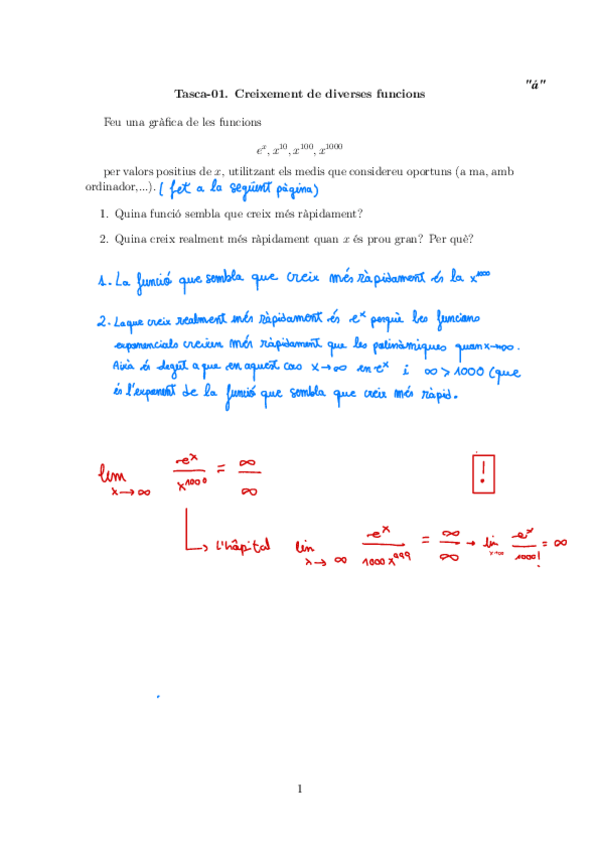 "á"
Tasca-01. Creixement de diverses funcions
Feu una gràfica de les funcions
eˣ, x¹⁰, x¹⁰⁰, x¹⁰⁰⁰
per valors positius de x, utilitzant els medis que considereu oportuns (a ma, amb
ordinador,...). (fet a la següent pàgina)
1. Quina funció sembla que creix més ràpidament?
2. Quina creix realment més ràpidament quan x és prou gran? Per què?
1. La funció que sembla que creix més ràpidament és la x¹⁰⁰⁰
2. La que creix realment més ràpidament és eˣ perquè les funcions
exponencials creixen més ràpidament que les polinàmiques quan x→∞.
Això és degut a que en aquest cas x→∞ en eˣ i ∞>1000 (que
és l'exponent de la funció que sembla que creix més ràpid.
lim x→∞ eˣ/x¹⁰⁰⁰ = ∞/∞
!
L'hôpital lim x→∞ eˣ/1000x⁹⁹⁹ = ∞/∞ → lim x→∞ eˣ/1000! = ∞
1